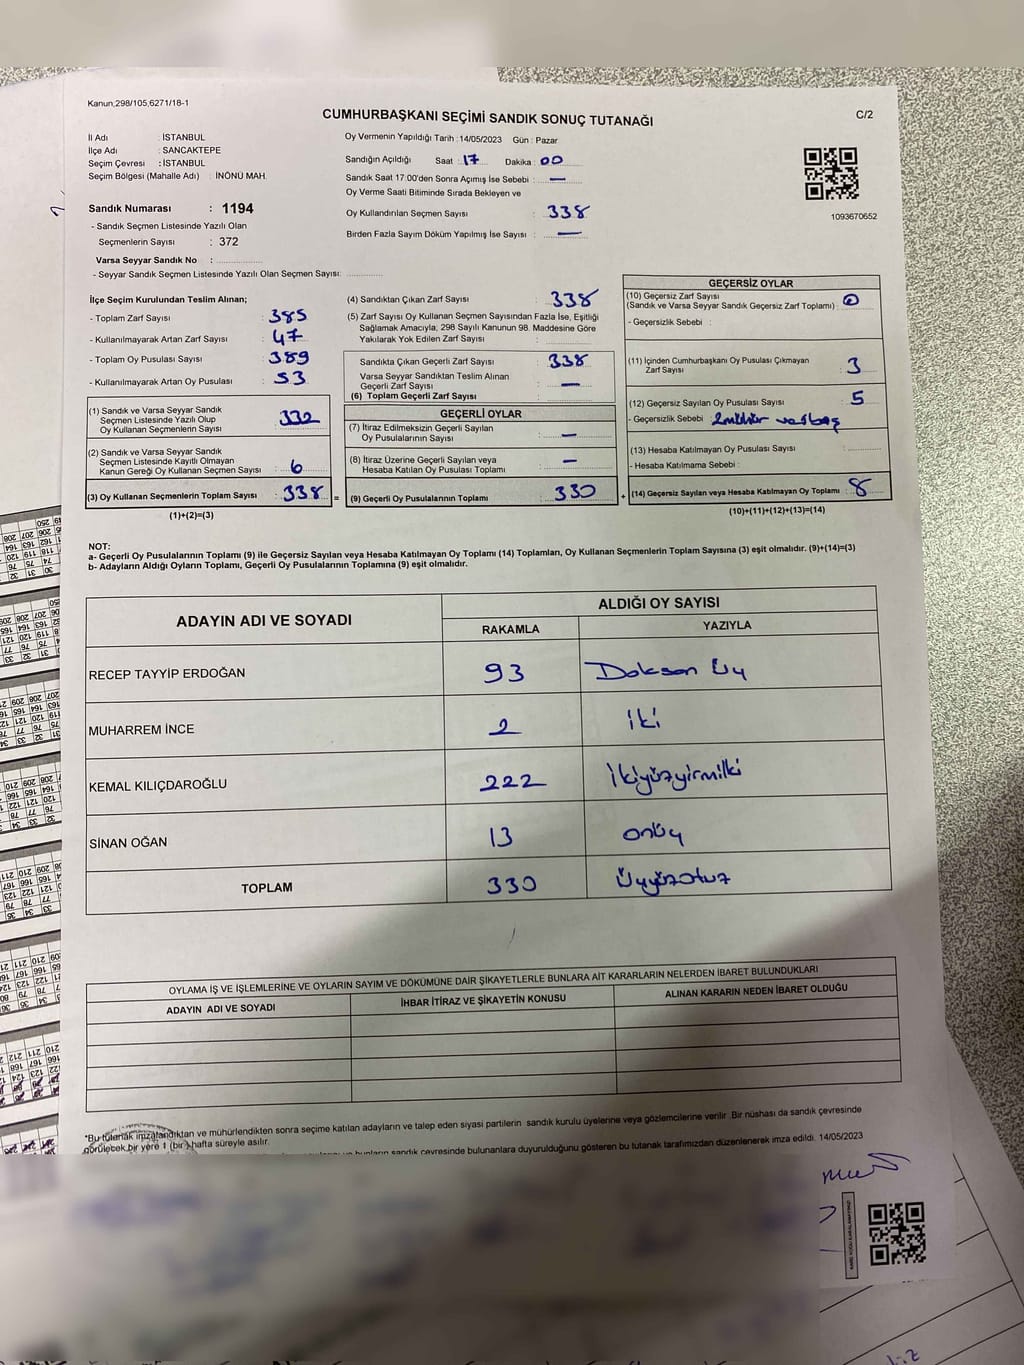 Kanun,298/105,6271/18-1
CUMHURBAŞKANI SEÇİMİ SANDIK SONUÇ TUTANAĞI
C/2
İl Adı : İSTANBUL
İlçe Adı : SANCAKTEPE
Seçim Çevresi : İSTANBUL
Seçim Bölgesi (Mahalle Adı) : İNÖNÜ MAH.
Sandık Numarası : 1194
- Sandık Seçmen Listesinde Yazılı Olan
Seçmenlerin Sayısı : 372
Varsa Seyyar Sandık No :
- Seyyar Sandık Seçmen Listesinde Yazılı Olan Seçmen Sayısı:
Oy Vermenin Yapıldığı Tarih :14/05/2023 Gün : Pazar
Sandığın Açıldığı Saat : 17 Dakika : 00
Sandık Saat 17:00'den Sonra Açımış İse Sebebi : —
Oy Verme Saati Bitiminde Sırada Bekleyen ve
Oy Kullandırılan Seçmen Sayısı : 338
Birden Fazla Sayım Döküm Yapılmış İse Sayısı : —
1093670652
İlçe Seçim Kurulundan Teslim Alınan;
- Toplam Zarf Sayısı : 385
- Kullanılmayarak Artan Zarf Sayısı : 47
- Toplam Oy Pusulası Sayısı : 389
- Kullanılmayarak Artan Oy Pusulası : 53
(1) Sandık ve Varsa Seyyar Sandık
Seçmen Listesinde Yazılı Olup
Oy Kullanan Seçmenlerin Sayısı : 332
(2) Sandık ve Varsa Seyyar Sandık
Seçmen Listesinde Kayıtlı Olmayan
Kanun Gereği Oy Kullanan Seçmen Sayısı : 6
(3) Oy Kullanan Seçmenlerin Toplam Sayısı : 338 =
(1)+(2)=(3)
(4) Sandıktan Çıkan Zarf Sayısı : 338
(5) Zarf Sayısı Oy Kullanan Seçmen Sayısından Fazla İse, Eşitliği
Sağlamak Amacıyla, 298 Sayılı Kanunun 98. Maddesine Göre
Yakılarak Yok Edilen Zarf Sayısı :
Sandıkta Çıkan Geçerli Zarf Sayısı : 338
Varsa Seyyar Sandıktan Teslim Alınan
Geçerli Zarf Sayısı : —
(6) Toplam Geçerli Zarf Sayısı :
GEÇERLİ OYLAR
(7) İtiraz Edilmeksizin Geçerli Sayılan
Oy Pusulalarının Sayısı : —
(8) İtiraz Üzerine Geçerli Sayılan veya
Hesaba Katılan Oy Pusulası Toplamı : —
(9) Geçerli Oy Pusulalarının Toplamı : 330 +
GEÇERSİZ OYLAR
(10) Geçersiz Zarf Sayısı
(Sandık ve Varsa Seyyar Sandık Geçersiz Zarf Toplamı) : 0
- Geçersizlik Sebebi :
(11) İçinden Cumhurbaşkanı Oy Pusulası Çıkmayan
Zarf Sayısı : 3
(12) Geçersiz Sayılan Oy Pusulası Sayısı : 5
- Geçersizlik Sebebi : 2mühür ve 3boş
(13) Hesaba Katılmayan Oy Pusulası Sayısı :
- Hesaba Katılmama Sebebi :
(14) Geçersiz Sayılan veya Hesaba Katılmayan Oy Toplamı : 8
(10)+(11)+(12)+(13)=(14)
NOT:
a- Geçerli Oy Pusulalarının Toplamı (9) ile Geçersiz Sayılan veya Hesaba Katılmayan Oy Toplamı (14) Toplamları, Oy Kullanan Seçmenlerin Toplam Sayısına (3) eşit olmalıdır. (9)+(14)=(3)
b- Adayların Aldığı Oyların Toplamı, Geçerli Oy Pusulalarının Toplamına (9) eşit olmalıdır.
ADAYIN ADI VE SOYADI
ALDIĞI OY SAYISI
RAKAMLA YAZIYLA
RECEP TAYYİP ERDOĞAN 93 Doksan Üç
MUHARREM İNCE 2 iki
KEMAL KILIÇDAROĞLU 222 ikiyüzyirmiiki
SİNAN OĞAN 13 onüç
TOPLAM 330 Üçyüzotuz
OYLAMA İŞ VE İŞLEMLERİNE VE OYLARIN SAYIM VE DÖKÜMÜNE DAİR ŞİKAYETLERLE BUNLARA AİT KARARLARIN NELERDEN İBARET BULUNDUKLARI
ADAYIN ADI VE SOYADI İHBAR İTİRAZ VE ŞİKAYETİN KONUSU ALINAN KARARIN NEDEN İBARET OLDUĞU
*Bu tutanak imzalandıktan ve mühürlendikten sonra seçime katılan adayların ve talep eden siyasi partilerin sandık kurulu üyelerine veya gözlemcilerine verilir .Bir nüshası da sandık çevresinde
görülecek bir yere 1 (bir) hafta süreyle asılır.
sandık çevresinde bulunanlara duyurulduğunu gösteren bu tutanak tarafımızdan düzenlenerek imza edildi. 14/05/2023